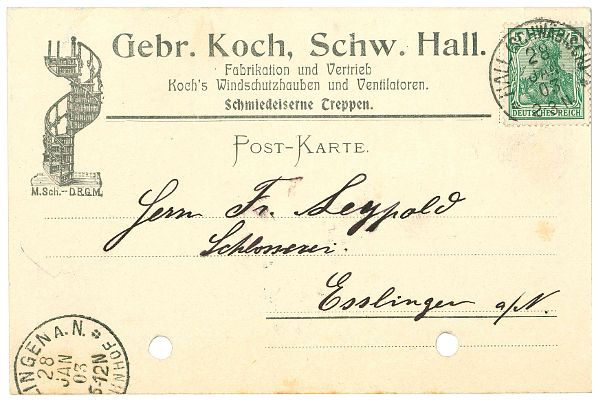 Gebr. Koch, Schw. Hall.
Fabrikation und Vertrieb
Koch's Windschutzhauben und Ventilatoren.
Schmiedeiserne Treppen.
M.Sch.-D.R.G.M.
HALL (SCHWÄBISCH)
28
JAN
03
DEUTSCHES REICH
POST-KARTE.
Herrn Fr. Leypold
Schlosserei.
Esslingen a/N.
LINGEN A. N.
28
JAN
03
5-12N